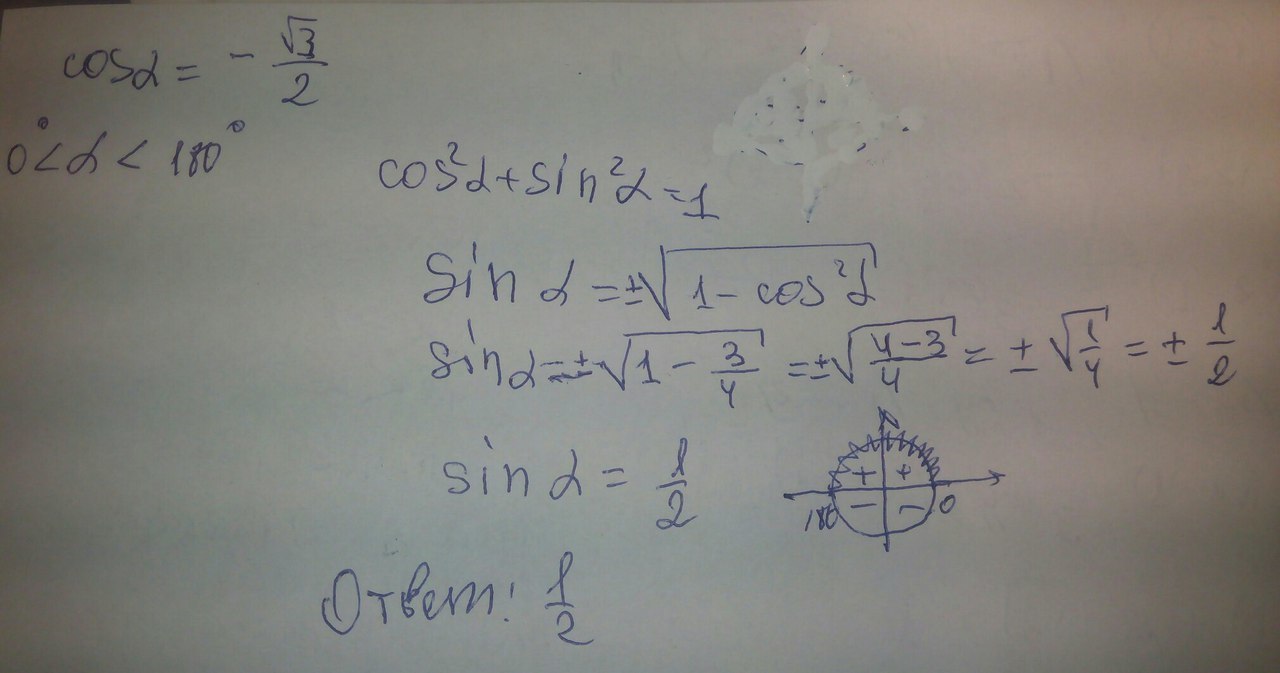 cosα = - √3/2
0° < α < 180°
cos²α + sin²α = 1
sin α = ±√(1 - cos²α)
sin α = ±√(1 - 3/4) = ±√((4-3)/4) = ± √(1/4) = ± 1/2
sin α = 1/2
+ +
180 - - 0
Ответ: 1/2